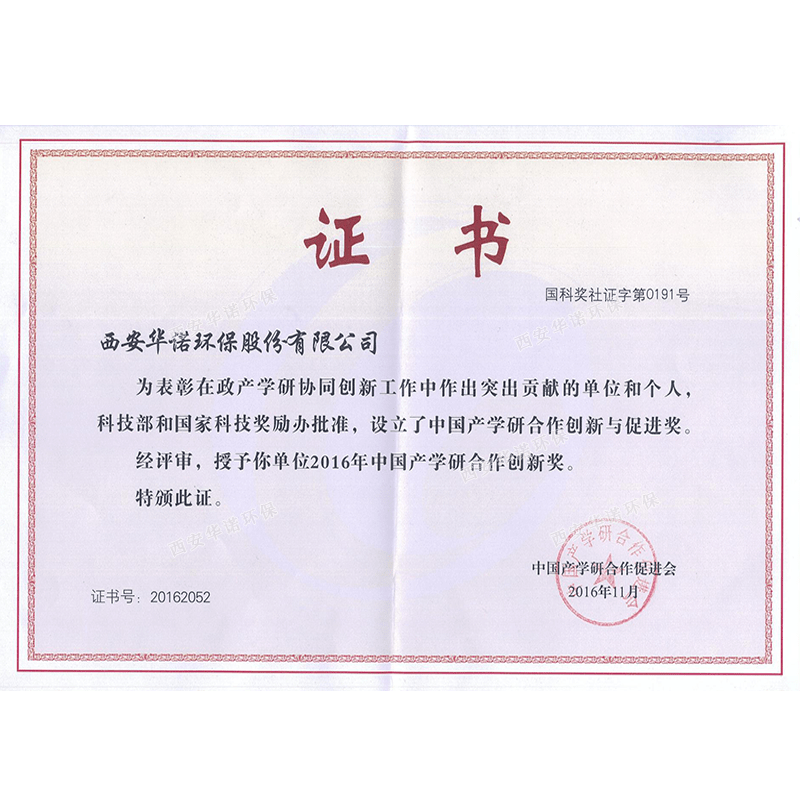 证 书
国科奖社证字第0191号
西安华诺环保股份有限公司
为表彰在政产学研协同创新工作中作出突出贡献的单位和个人，
科技部和国家科技奖励办批准，设立了中国产学研合作创新与促进奖。
经评审，授予你单位2016年中国产学研合作创新奖。
特颁此证。
中国产学研合作促进会
2016年11月
证书号：20162052
中国产学研合作促进会
西安华诺环保
西安华诺环保
西安华诺环保
西安华诺环保
西安华诺环保